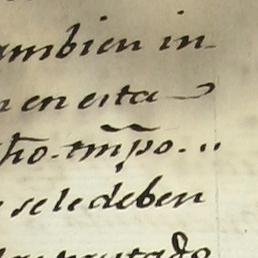 ambien in-
n en esta
ho. tmpo. . .
se le deben